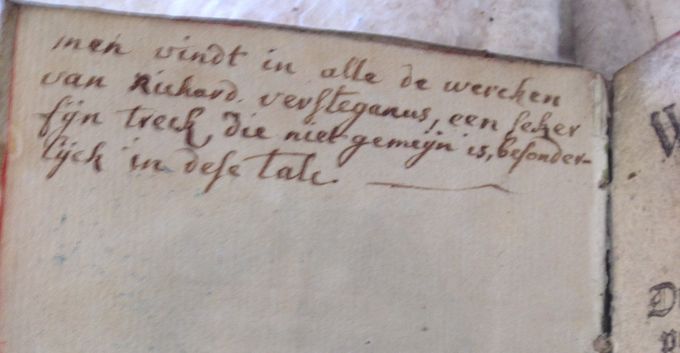 men vindt in alle de wercken
van Richard. versteganus, een seker
fijn treck, die niet gemeijn is, besonder-
lijck in dese tale.
W
D